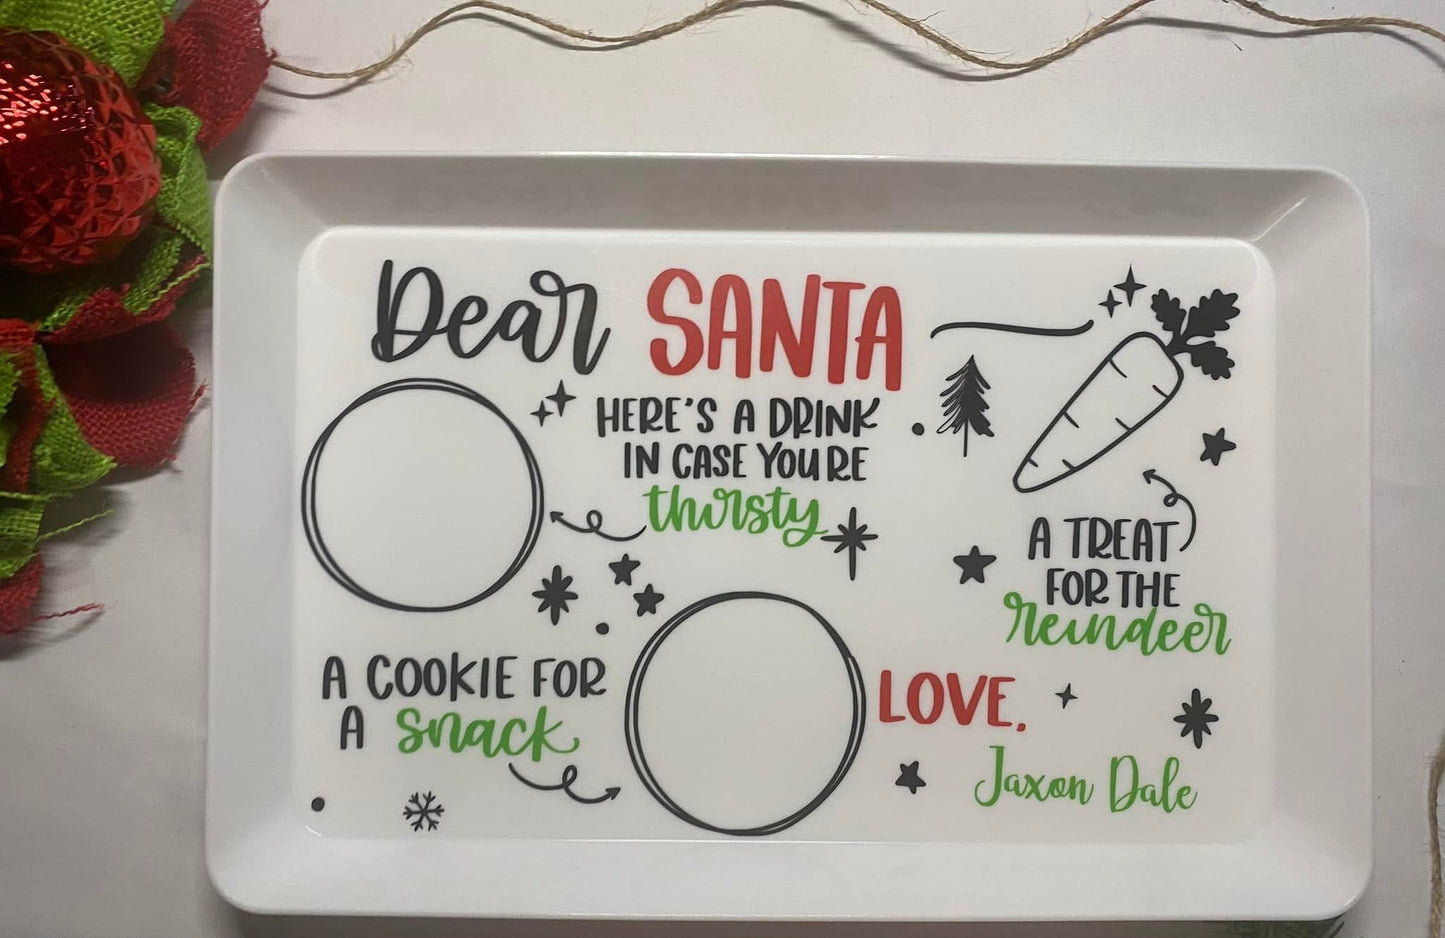 Dear SANTA
HERE'S A DRINK
IN CASE YOURE
thirsty
A TREAT
FOR THE
reindeer
A COOKIE FOR
A snack
LOVE,
Jaxon Dale